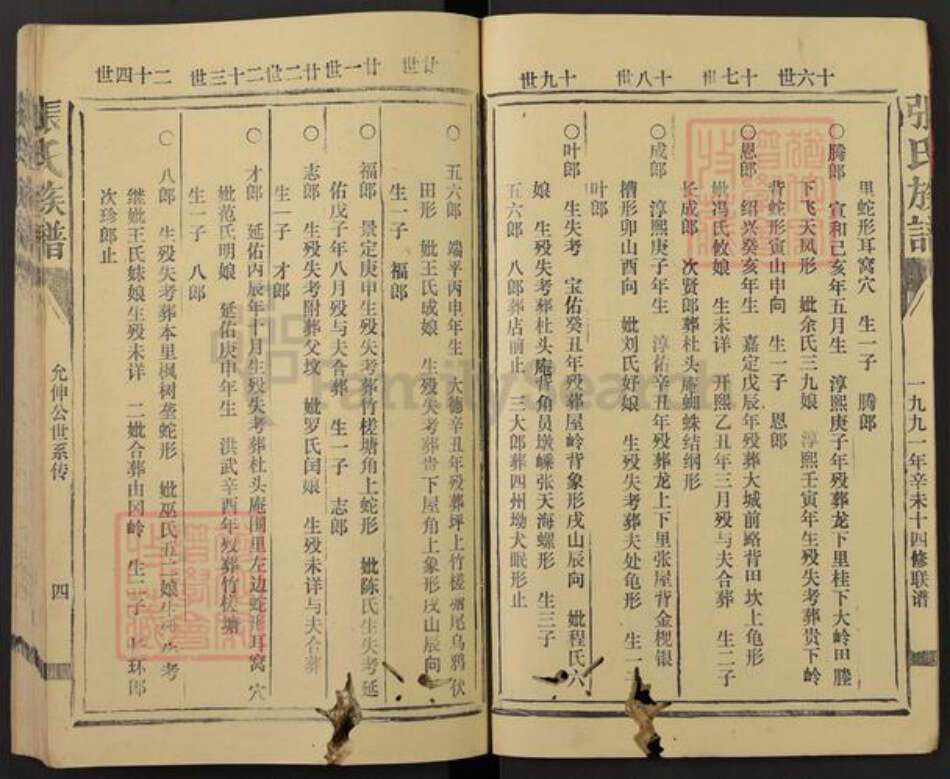 张氏族谱
一九九一年辛未十四修联谱
十六世
十七世
十八世
十九世
里蛇形耳窝穴 生一子 腾郎
○腾郎 宣和己亥年五月生 淳熙庚子年殁葬龙下里桂下大岭田塍
下飞天凤形 妣余氏三九娘 淳熙壬寅年生殁失考葬贵下岭
背蛇形寅山申向 生一子 恩郎
○恩郎 绍兴癸亥年生 嘉定戊辰年殁葬大城前路背田坎上龟形
妣冯氏敀娘 生未详 开熙乙丑年三月殁与夫合葬 生二子
长成郎 次贤郎葬杜头庵蝴蛛结纲形
○成郎 淳熙庚子年生 淳佑辛丑年殁葬龙上下里张屋背金枧银
槽形卯山酉向 妣刘氏好娘 生殁失考葬夫处龟形 生一子
叶郎
○叶郎 生失考 宝佑癸丑年殁葬屋岭背象形戌山辰向 妣程氏六
娘 生殁失考葬杜头庵背角员墩嵊张天海螺形 生三子
五六郎 八郎葬店前止 三大郎葬四州坳犬眠形止
廿世
廿一世
廿二世
二十三世
二十四世
○五六郎 端平丙申年生 大德辛丑年殁葬坪上竹槎 尾乌鸦伏
田形 妣王氏成娘 生殁失考葬贵下屋角上象形戌山辰向
生一子 福郎
○福郎 景定庚申生殁失考葬竹槎塘角上蛇形 妣陈氏生失考延
佑戊子年八月殁与夫合葬 生一子 志郎
○志郎 生殁失考附葬父坟 妣罗氏闰娘 生殁未详与夫合葬
生一子 才郎
○才郎 延佑丙辰年十月生殁失考葬杜头庵围里左边蛇形耳窝穴
妣范氏明娘 延佑庚申年生 洪武辛酉年殁葬竹槎塘
生一子 八郎
○八郎 生殁失考葬本里枫树垄蛇形 妣巫氏五二娘生 失考
继妣王氏妹娘生殁未详 二妣合葬由冈岭 生二子 环郎
次珍郎止
张氏族谱
允伸公世系传
四
FamilySearch